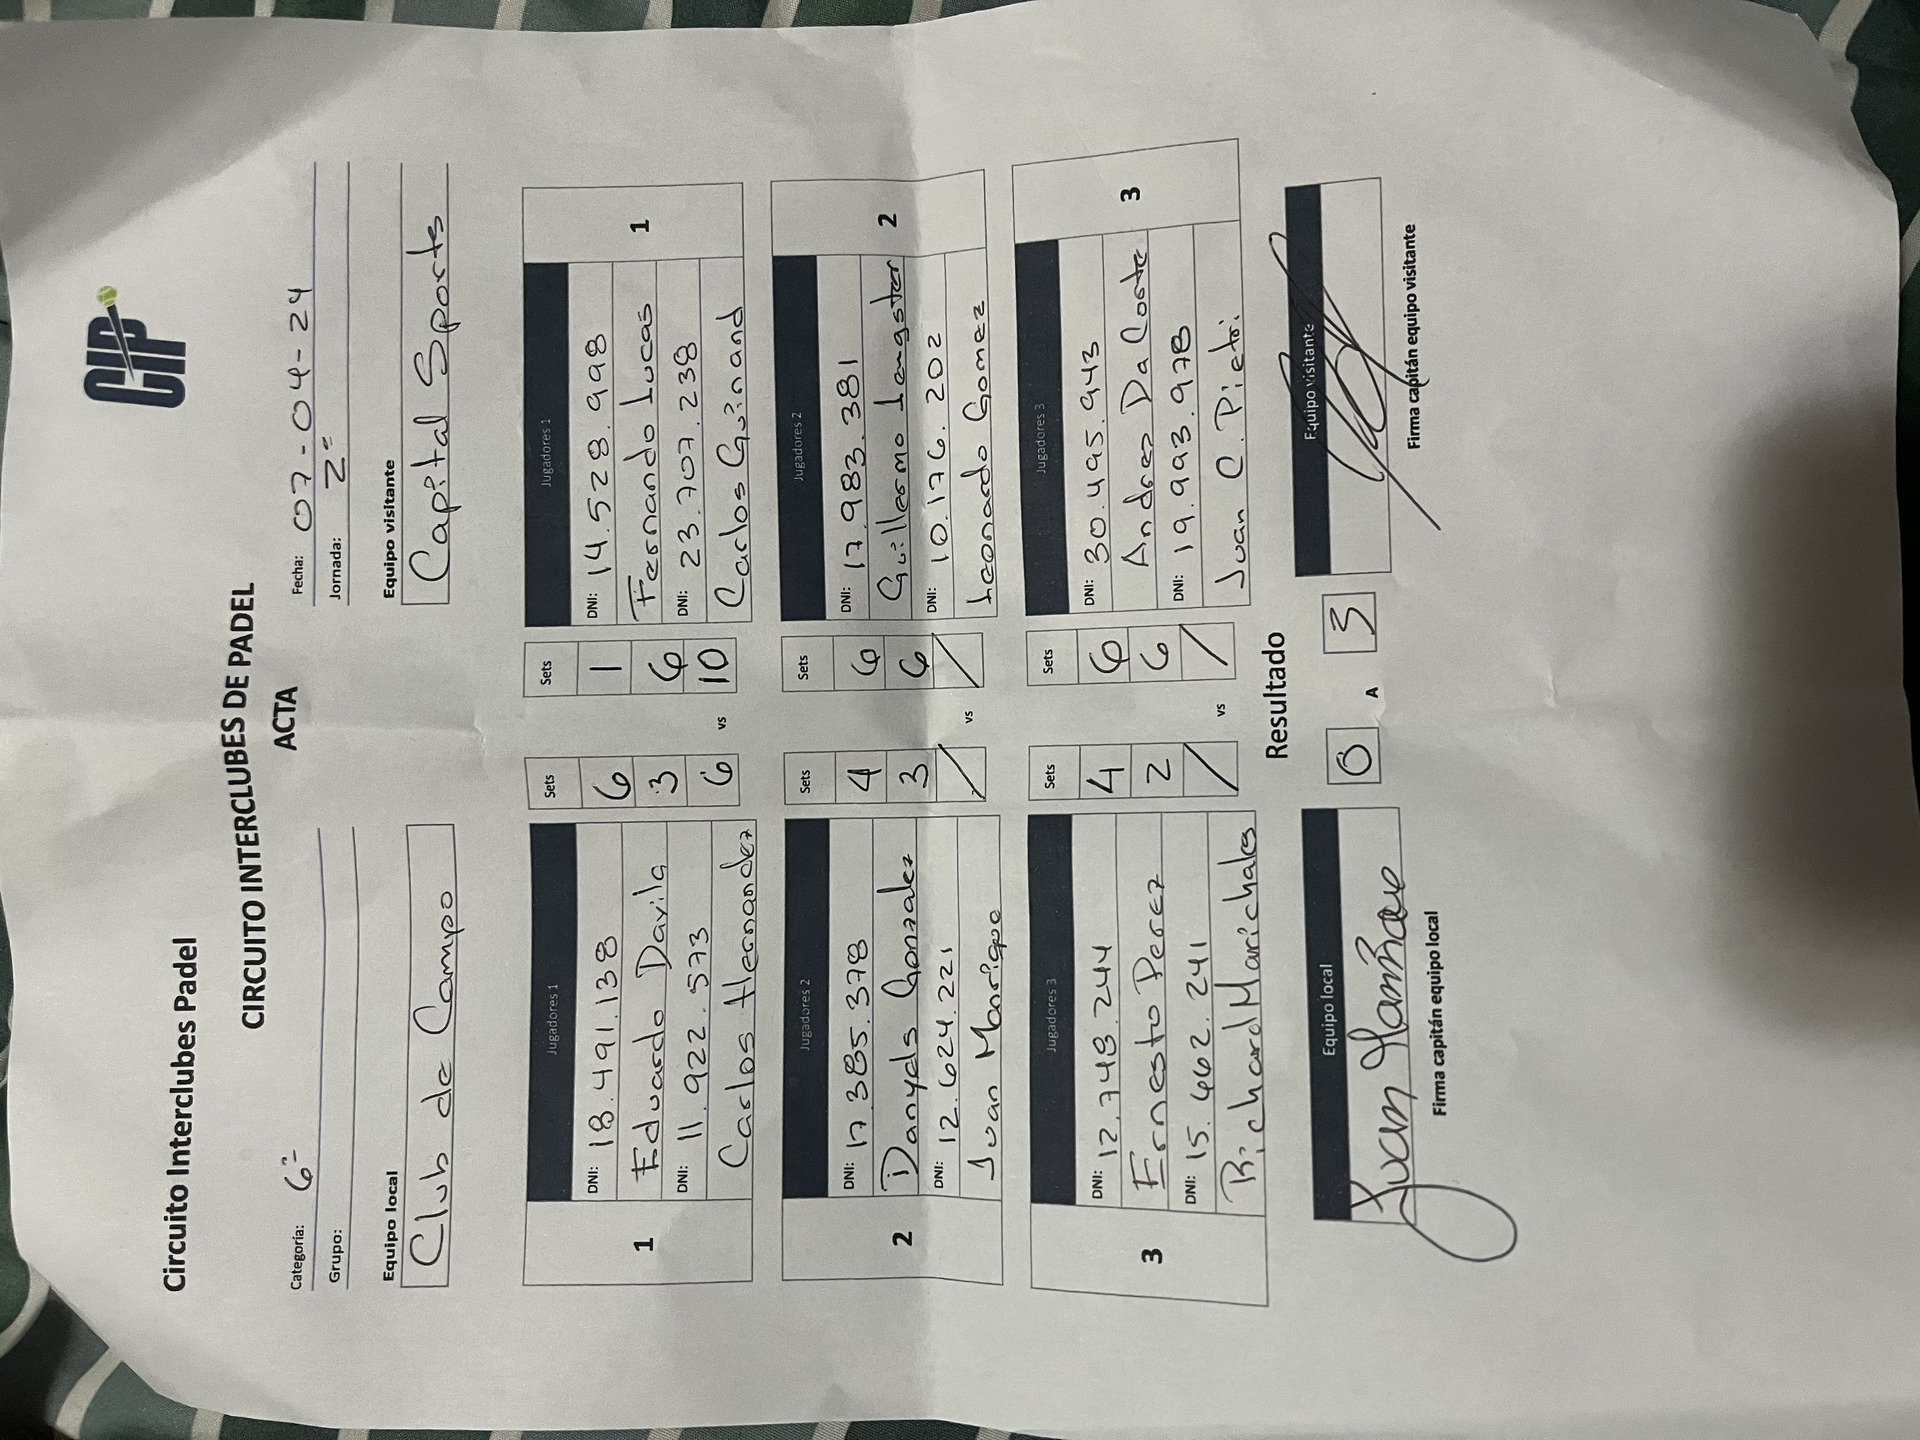 CIP
Circuito Interclubes Padel
CIRCUITO INTERCLUBES DE PADEL
ACTA
Categoria: 6ª Fecha: 07-04-24
Grupo: Jornada: 2ª
Equipo local Equipo visitante
Club de Campo Capital Sports
Jugadores 1 Sets Sets Jugadores 1
1 DNI: 18.491.138 6 1 DNI: 14.528.998 1
Eduardo Davila 3 6 Fernando Lucas
DNI: 11.922.573 6 vs 10 DNI: 23.707.238
Carlos Hernandez Carlos Guinand
Jugadores 2 Sets Sets Jugadores 2
2 DNI: 17.385.378 4 6 DNI: 17.983.381 2
Danyds Gonzalez 3 6 Guillermo Langster
DNI: 12.624.221 / vs / DNI: 10.176.202
Juan Manrique Leonardo Gomez
Jugadores 3 Sets Sets Jugadores 3
3 DNI: 12.748.244 4 6 DNI: 30.495.943 3
Ernesto Perez 2 6 Andres Da Costa
DNI: 15.662.241 / vs / DNI: 19.993.978
Richard Marichales Juan C. Pietri
Resultado
Equipo local 0 A 3 Equipo visitante
Juan
Firma capitán equipo local Firma capitán equipo visitante